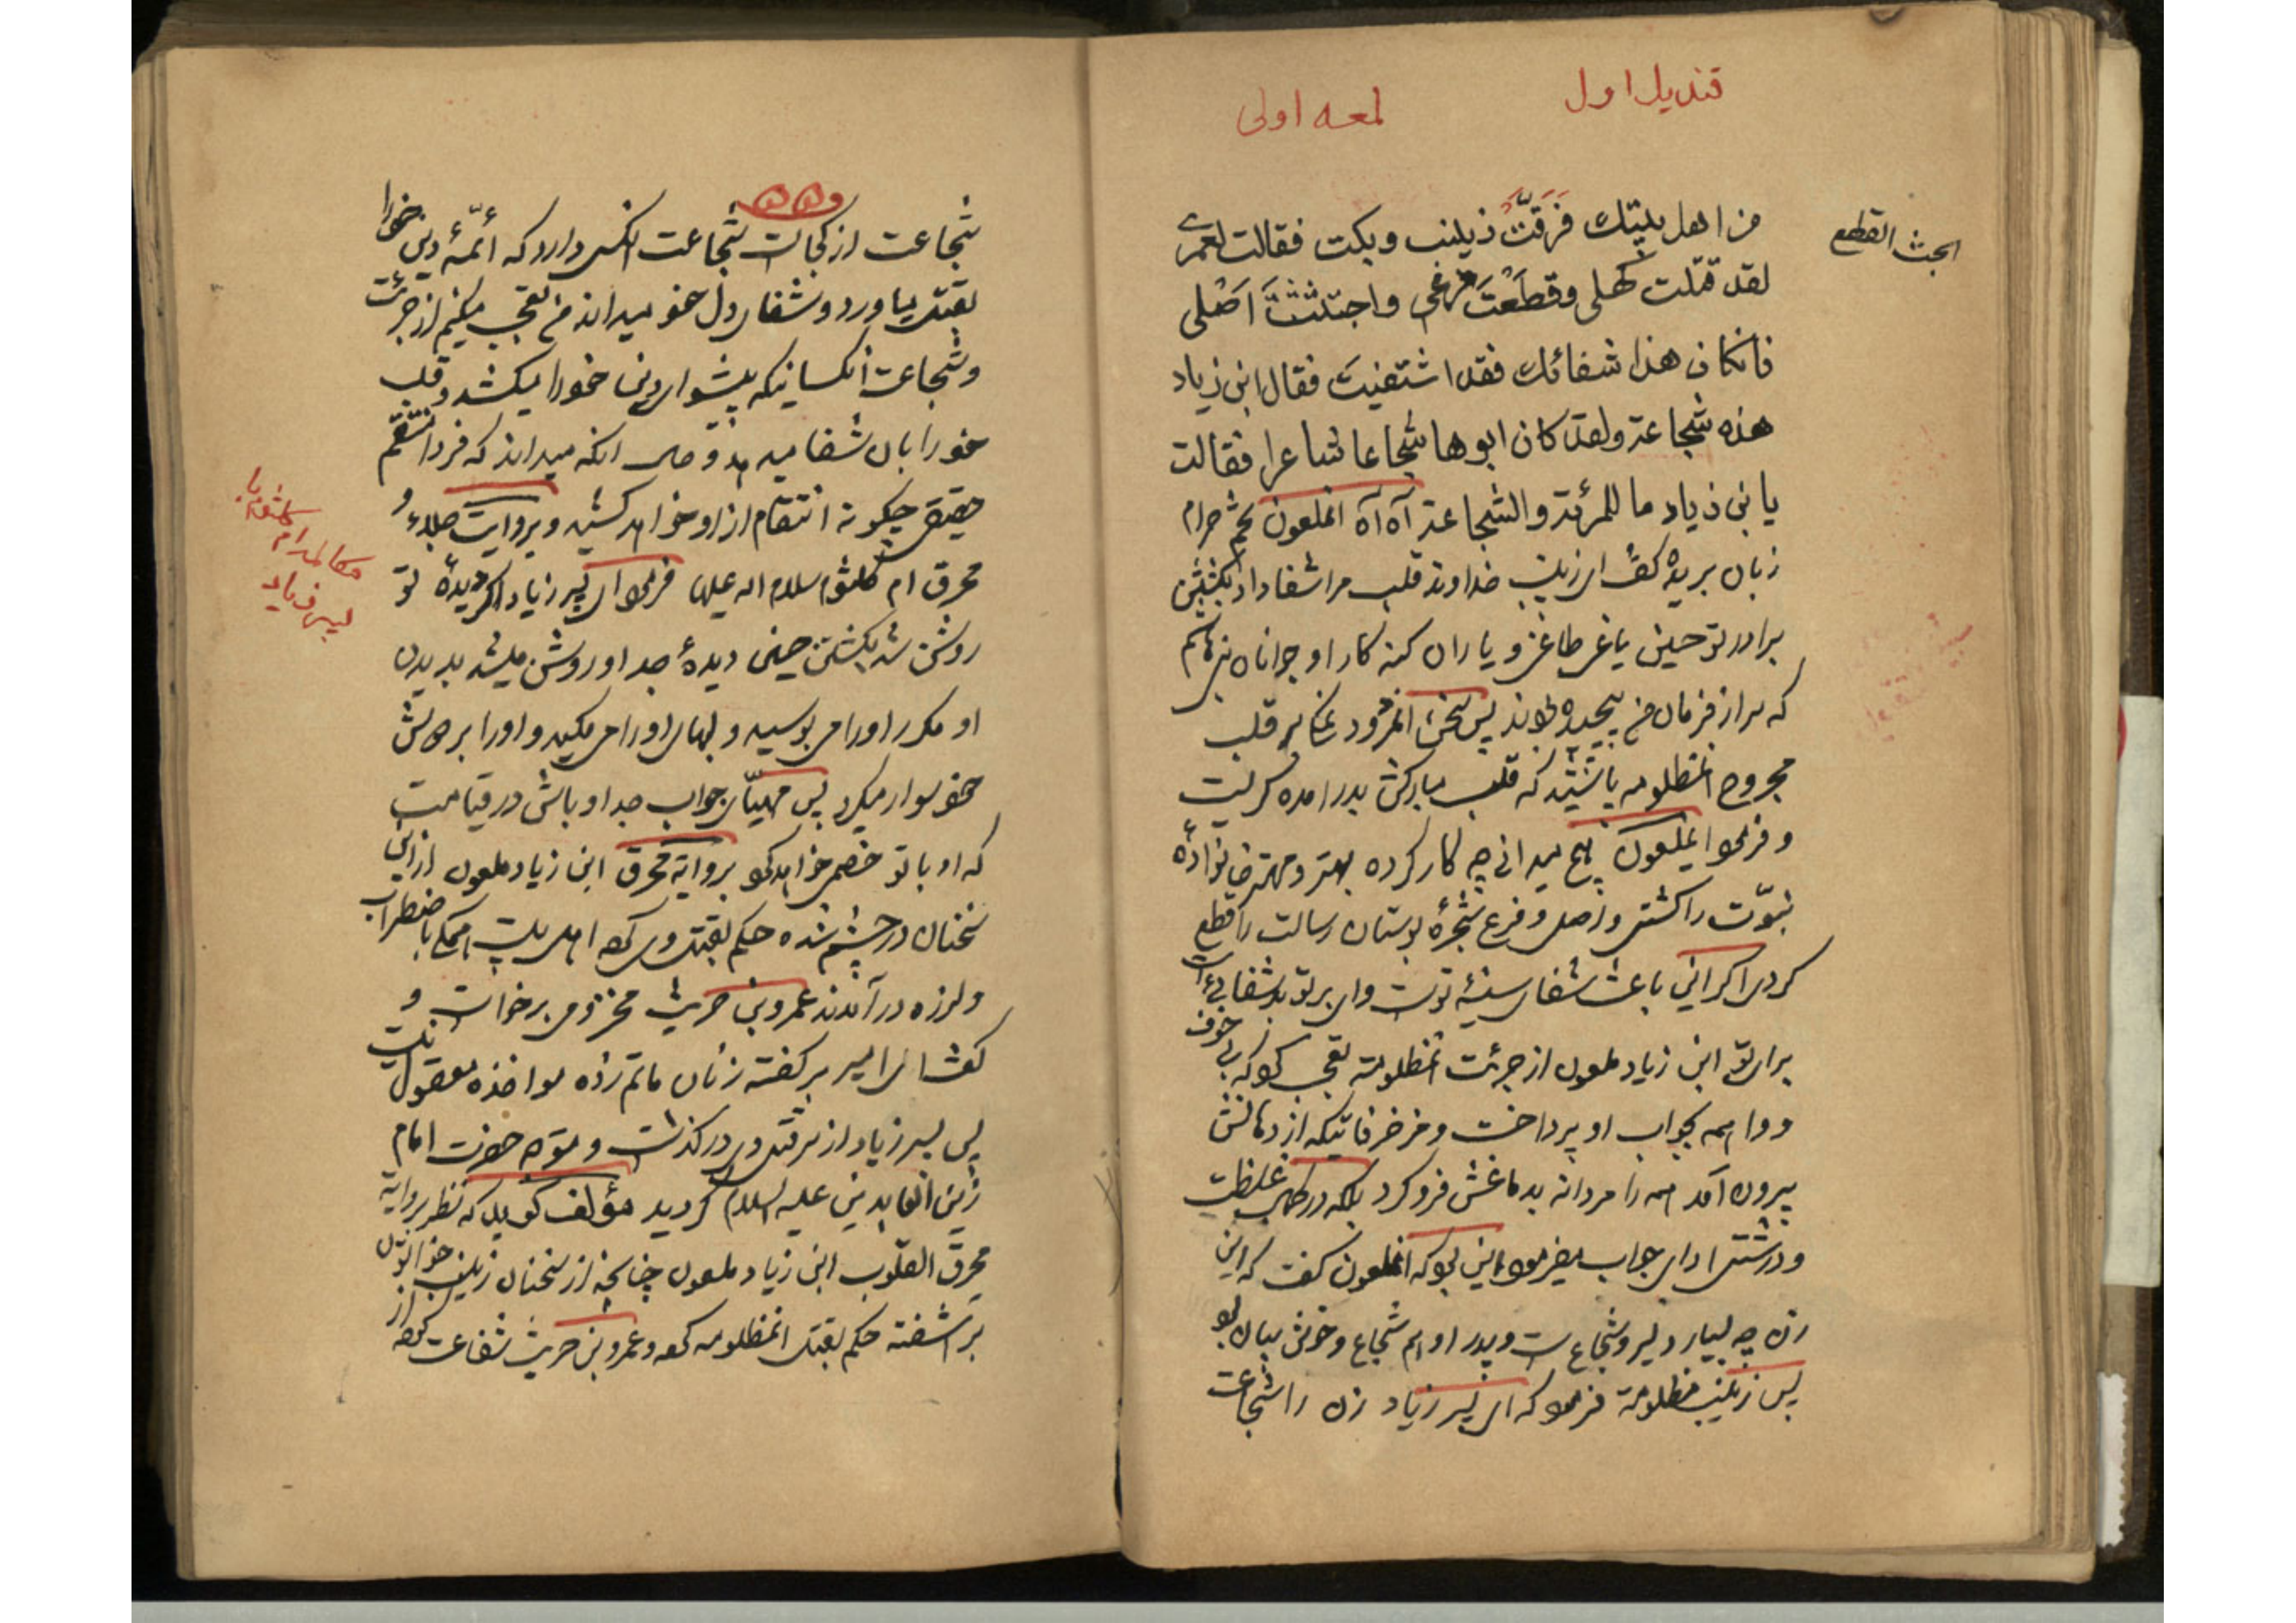 قندیل اول
لمعه اولی
الجث القطع
من اهل بیتک فرقّت زینب و بکت فقالت لعمری
لقد قتلت کهلی و قطعت فرعی واجتثثت اصلی
فانکان هذا شفائک فقد اشتفیت فقال ابن زیاد
هذه شجاعة ولقد کان ابوها شجاعا شاعرا فقالت
یا بن زیاد ما للمرئة والشجاعة آه آه انملعون بچشم حرام
زبان بریده گفت ای زینب خداوند قلب مرا شفا داد بکشتن
برادر تو حسین یاغی طاغی و یاران کنه کار او جوانان بنی هاشم
که سر از فرمان من پیچیده بودند پس سخن انمردود نمک بر قلب
مجروح انمظلومه پاشید که قلب مبارکش بدرد امده گریست
و فرمود ایملعون هیچ میدانی چه کار کرده بهتر و مهتر خانواده
نبوّت را کشتی و اصل و فرع شجرۀ بوستان رسالت را قطع
کردی اگر این باعث شفای سینۀ توست وای بر تو بد شفائی است
برای تو ابن زیاد ملعون از جرئت انمظلومه تعجب کرد که بی خوف
و واهمه بجواب او پرداخت و مزخرفاتیکه از دهانش
بیرون آمد همه را مردانه بدماغش فرو کرد بلکه در کمال غلظت
و درشتی ادای جواب میفرمود این بود که انملعون گفت که این
زن چه بسیار دلیر و شجاع است و پدر او هم شجاع و خوش بیان بود
پس زینب مظلومه فرمود که ای پسر زیاد زن را شجاعت
شجاعت از کجاست شجاعت انکس دارد که ائمّۀ دین خود را
بقتل بیاورد و شفای دل خود میداند من تعجب میکنم از جرئت
و شجاعت انکسانیکه پیشوای دین خود را میکشد و قلب
خود را بان شفا میدهد و حال انکه میداند که فردا منتقم
حقیقی چگونه انتقام از او خواهد کشید و بروایت جلاء و
محرق ام کلثوم سلام اله علیها فرمود ای پسر زیاد اگر دیدۀ تو
روشن شد بکشتن حسین دیدۀ جد او روشن میشد بدیدن
او مکرر او را می بوسید و لبهای او را می مکید و او را بر دوش
خود سوار میکرد پس مهیّای جواب جد او باش در قیامت
که او با تو خصم خواهد بود بروایة محرق ابن زیاد ملعون از این
سخنان در خشم شده حکم بقتل وی کرد اهل بیت همگی باضطراب
و لرزه در آمدند عمرو بن حریث مخزومی برخاست و
گفت ای امیر بر گفته زنان ماتم زده مواخذه معقول نیست
پس پسر زیاد از سر قتل وی در گذشت و متوجه حضرت امام
زین العابدین علیه السلام گردید مؤلف گوید که نظر بروایة
محرق القلوب ابن زیاد ملعون چنانچه از سخنان زینب خواتون
بر اشفته حکم بقتل انمظلومه کرد و عمرو بن حریث شفاعت کرد از
مکالمه ام کلثوم با
پسر زیاد